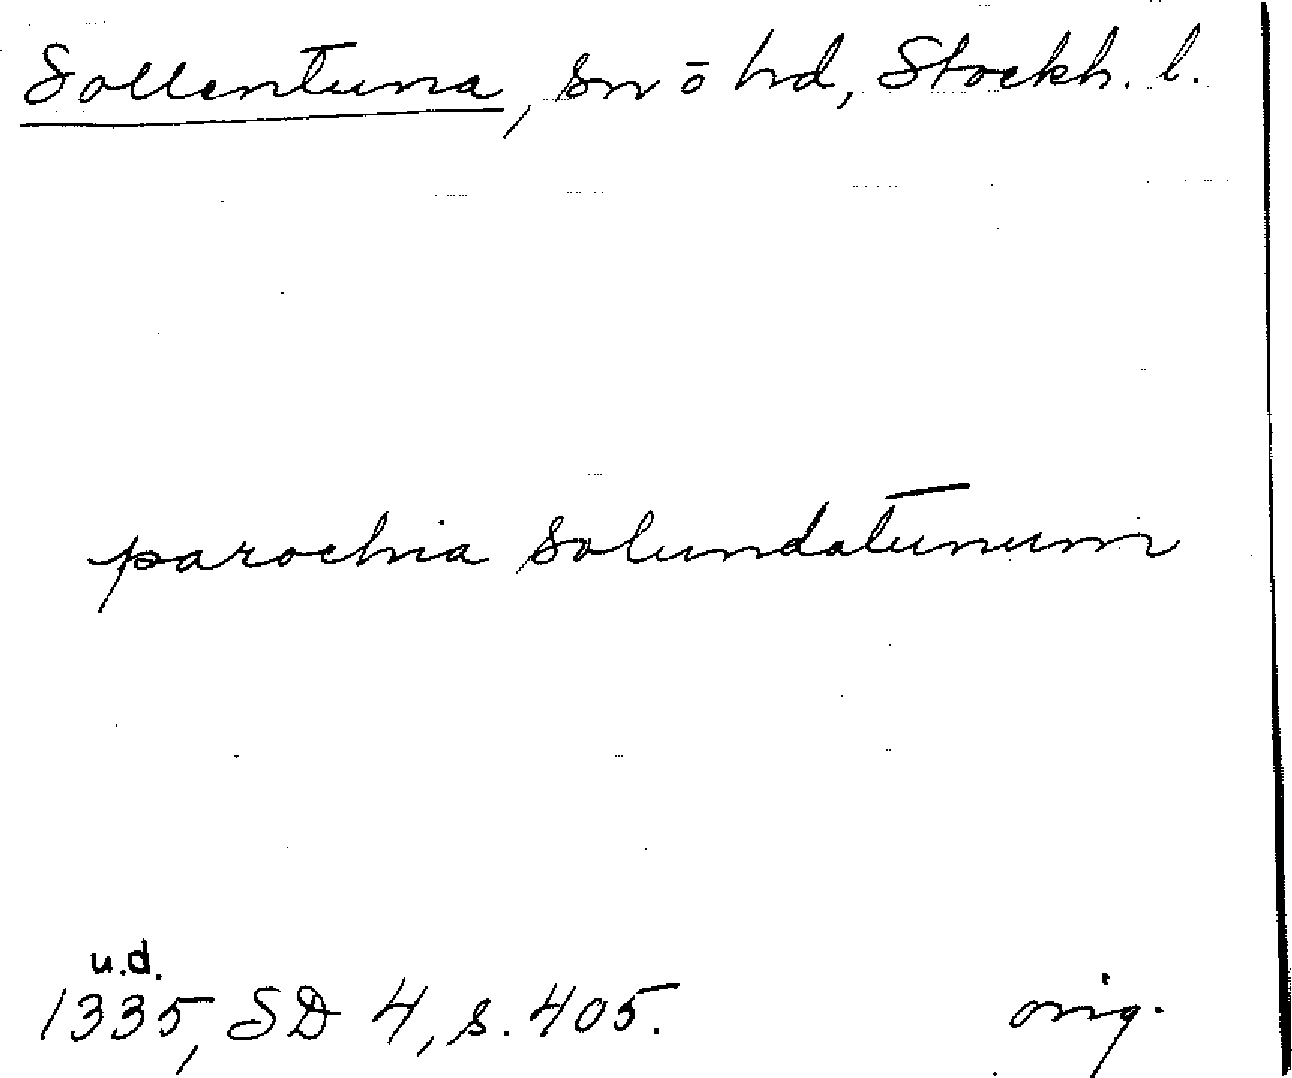 Sollentuna, sn o hd, Stockh. l.
parochia Solundatunum
u.d.
1335, SD 4, s. 405. orig.